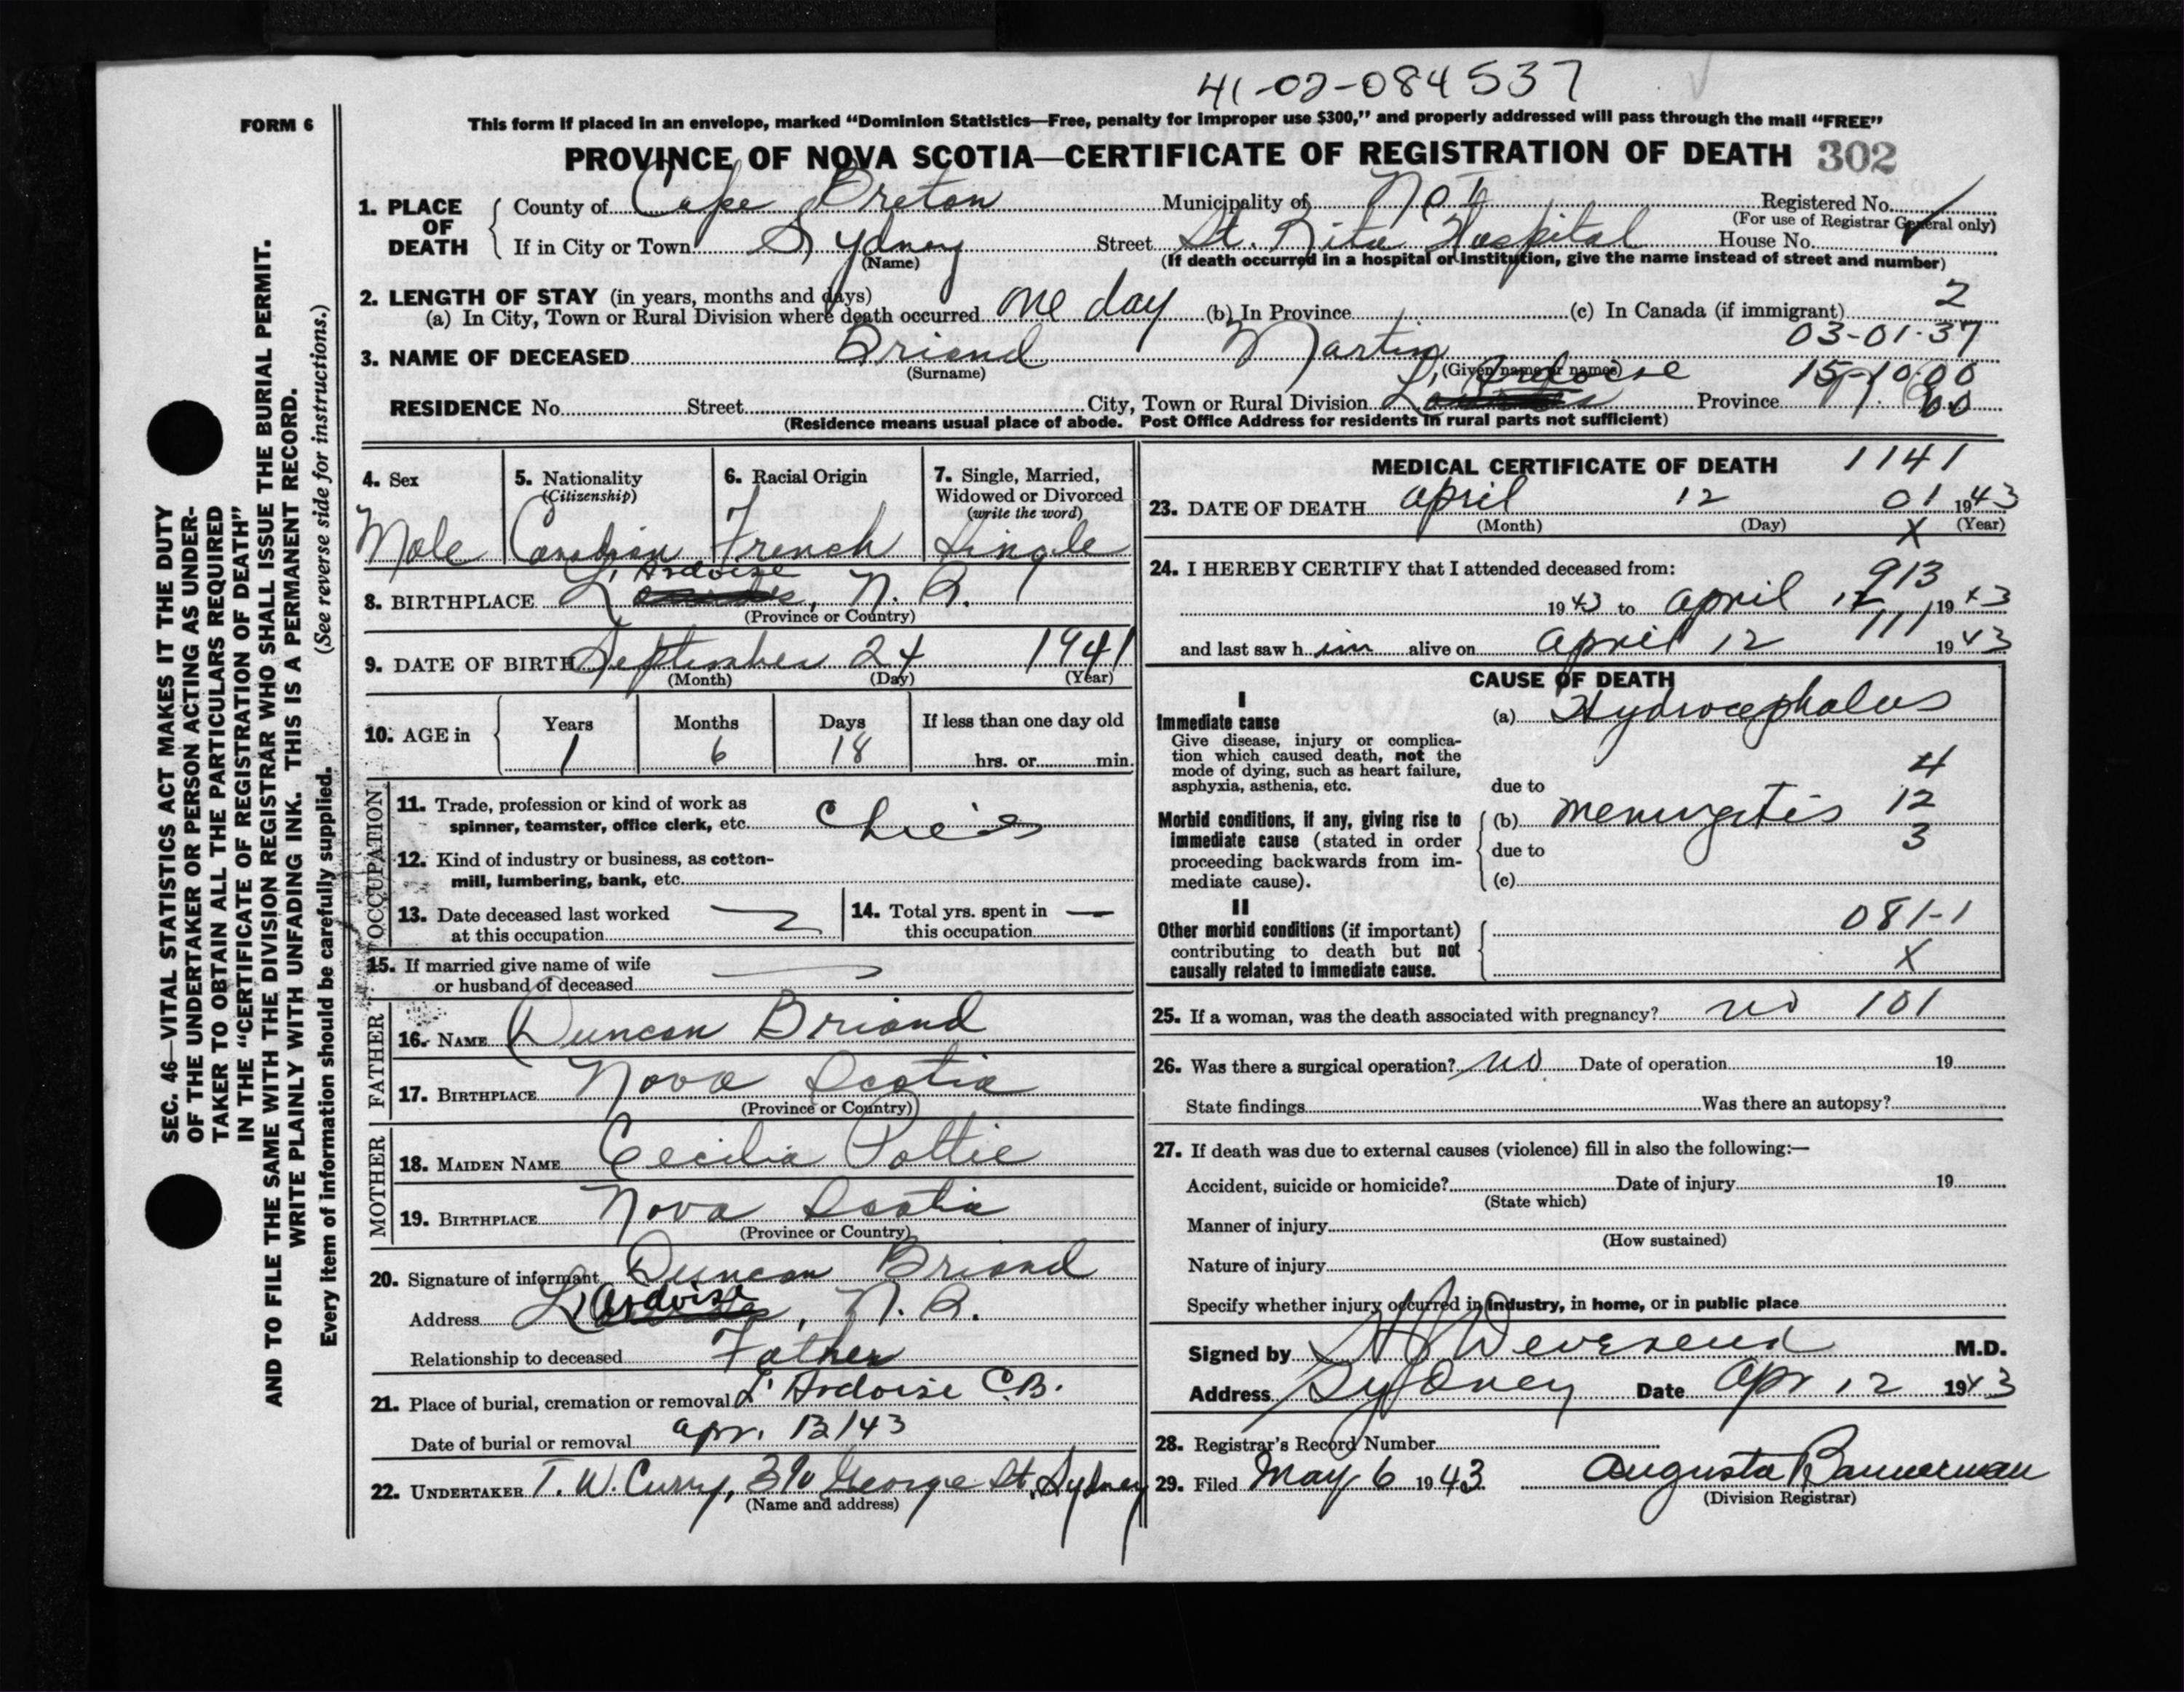 41-02-084537
FORM 6
This form if placed in an envelope, marked “Dominion Statistics—Free, penalty for improper use $300,” and properly addressed will pass through the mail “FREE”
PROVINCE OF NOVA SCOTIA—CERTIFICATE OF REGISTRATION OF DEATH 302
SEC. 46—VITAL STATISTICS ACT MAKES IT THE DUTY
OF THE UNDERTAKER OR PERSON ACTING AS UNDER-
TAKER TO OBTAIN ALL THE PARTICULARS REQUIRED
IN THE “CERTIFICATE OF REGISTRATION OF DEATH”
AND TO FILE THE SAME WITH THE DIVISION REGISTRAR WHO SHALL ISSUE THE BURIAL PERMIT.
WRITE PLAINLY WITH UNFADING INK. THIS IS A PERMANENT RECORD.
Every item of information should be carefully supplied. (See reverse side for instructions.)
1. PLACE OF DEATH County of Cape Breton Municipality of No I Registered No.
(For use of Registrar General only)
If in City or Town Sydney Street St. Rita Hospital House No.
(Name) (If death occurred in a hospital or institution, give the name instead of street and number)
2. LENGTH OF STAY (in years, months and days) 2
(a) In City, Town or Rural Division where death occurred one day (b) In Province (c) In Canada (if immigrant)
03-01-37
3. NAME OF DECEASED Briand Martin
(Surname) (Given name or names)
L'Ardoise 15-10-00
RESIDENCE No. Street City, Town or Rural Division Province
(Residence means usual place of abode. Post Office Address for residents in rural parts not sufficient)
4. Sex 5. Nationality (Citizenship) 6. Racial Origin 7. Single, Married, Widowed or Divorced (write the word)
Male Canadian French Single
L'Ardoise
8. BIRTHPLACE , N. S.
(Province or Country)
9. DATE OF BIRTH September 24 1941
(Month) (Day) (Year)
10. AGE in Years Months Days If less than one day old
1 6 18 hrs. or min.
OCCUPATION
11. Trade, profession or kind of work as
spinner, teamster, office clerk, etc.
12. Kind of industry or business, as cotton-
mill, lumbering, bank, etc.
13. Date deceased last worked
at this occupation
14. Total yrs. spent in
this occupation —
15. If married give name of wife
or husband of deceased
FATHER
16. NAME Duncan Briand
17. BIRTHPLACE Nova Scotia
(Province or Country)
MOTHER
18. MAIDEN NAME Cecilia Pottie
19. BIRTHPLACE Nova Scotia
(Province or Country)
20. Signature of informant Duncan Briand
Address L'Ardoise, N. S.
Relationship to deceased Father
21. Place of burial, cremation or removal L'Ardoise C.B.
Date of burial or removal apr. 13/43
22. UNDERTAKER T. W. Curry, George St. Sydney
(Name and address)
MEDICAL CERTIFICATE OF DEATH 1141
23. DATE OF DEATH april 12 01 1943
(Month) (Day) (Year)
X
24. I HEREBY CERTIFY that I attended deceased from:
913
1943 to april 12 1943
and last saw him alive on april 12 111 1943
CAUSE OF DEATH
I
Immediate cause
Give disease, injury or complica-
tion which caused death, not the
mode of dying, such as heart failure,
asphyxia, asthenia, etc.
(a) Hydrocephalus
4
due to
Morbid conditions, if any, giving rise to
immediate cause (stated in order
proceeding backwards from im-
mediate cause).
(b) meningitis 12
due to 3
(c)
II
Other morbid conditions (if important)
contributing to death but not
causally related to immediate cause.
081-1
X
25. If a woman, was the death associated with pregnancy? no 101
26. Was there a surgical operation? no Date of operation 19
State findings Was there an autopsy?
27. If death was due to external causes (violence) fill in also the following:—
Accident, suicide or homicide? Date of injury 19
(State which)
Manner of injury
(How sustained)
Nature of injury
Specify whether injury occurred in industry, in home, or in public place
Signed by M.D.
Address Sydney Date Apr 12 1943
28. Registrar's Record Number
29. Filed May 6 1943 Augusta Bannerman
(Division Registrar)